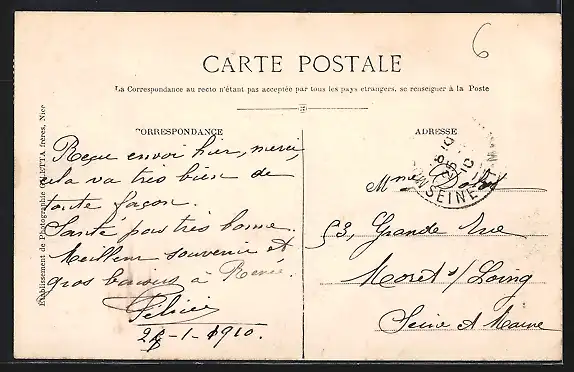 6
CARTE POSTALE
La Correspondance au recto n'étant pas acceptée par tous les pays étrangers, se renseigner à la Poste
CORRESPONDANCE
Reçu envoi hier, merci,
cela va très bien de
toute façon.
Santé pas très bonne.
Meilleur souvenir et
gros baisers à Renée.
25-1-1910.
ADRESSE
Mme
53, Grande Rue
Moret s/ Loing
Seine et Marne
SEINE-ET-M
Établissement de Photographie GILETTA frères, Nice